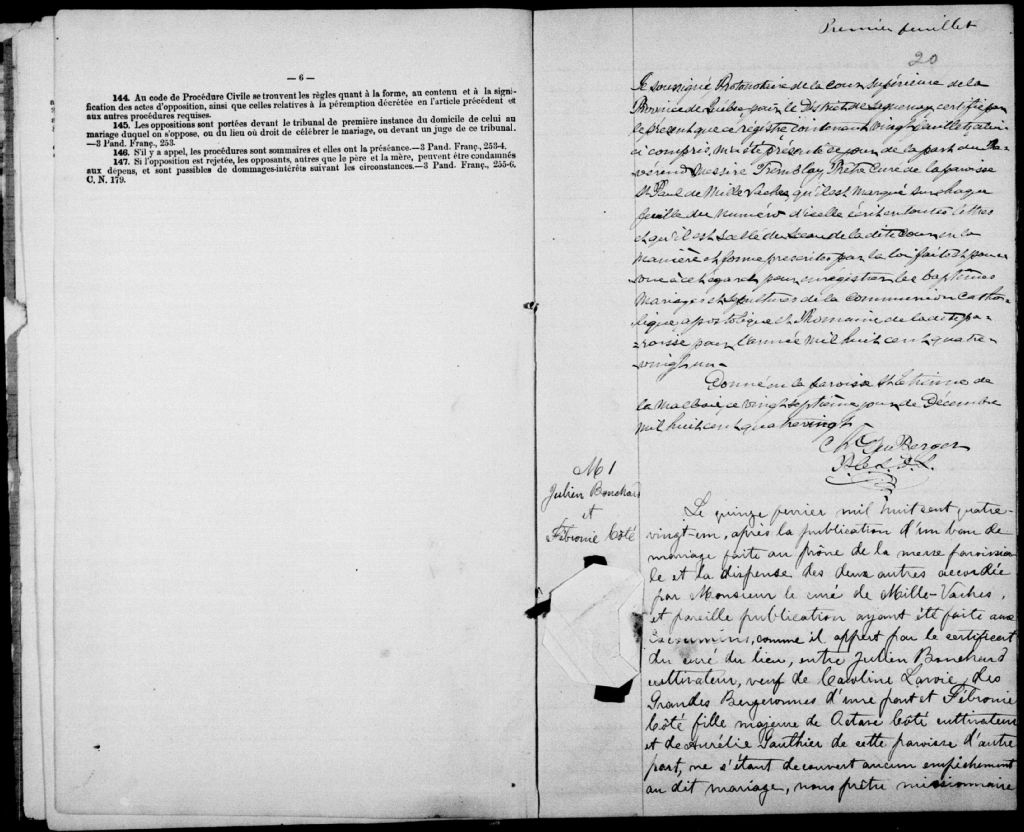 — 6 —
144. Au code de Procédure Civile se trouvent les règles quant à la forme, au contenu et à la signi-
fication des actes d'opposition, ainsi que celles relatives à la péremption décrétée en l'article précédent et
aux autres procédures requises.
145. Les oppositions sont portées devant le tribunal de première instance du domicile de celui au
mariage duquel on s'oppose, ou du lieu où droit de célébrer le mariage, ou devant un juge de ce tribunal.
—3 Pand. Franç., 253.
146. S'il y a appel, les procédures sont sommaires et elles ont la préséance.—3 Pand. Franç., 253-4.
147. Si l'opposition est rejetée, les opposants, autres que le père et la mère, peuvent être condamnés
aux dépens, et sont passibles de dommages-intérêts suivant les circonstances.—3 Pand. Franç., 255-6.
C. N. 179.
Premier feuillet
20
Je soussigné Protonotaire de la Cour Supérieure de la
Province de Québec, pour le District de Saguenay, certifie par
le présent que ce registre contenant vingt feuillets
ci compris, m'a été présenté ce jour de la part du Ré-
vérend Messire Tremblay, Prêtre Curé de la paroisse
St Paul de Mille Vaches qu'il est marqué sur chaque
feuille du numéro d'icelle écrit en toutes lettres
et qu'il est scellé du sceau de la dite Cour en la
manière et forme prescrites par la loi faite et pour-
vue à cet égard pour enrégistrer les baptêmes
mariages et sépultures de la communion catho-
lique, apostolique et Romaine de la dite pa-
-roisse pour l'année mil huit cent quatre-
-vingt un-
Donné en la paroisse St Etienne de
la Malbaie ce vingt septième jour de Décembre
mil huit cent quatre vingt
Berger
P.C.S.D.S.
M 1
Julien Bouchard
et
Fébronie Côté
Le quinze janvier mil huit cent quatre-
vingt-un, après la publication d'un ban de
mariage faite au prône de la messe paroissia
le et la dispense des deux autres accordée
par Monsieur le curé de Mille-Vaches,
et pareille publication ayant été faite aux
Escoumins, comme il appert par le certificat
du curé du lieu, entre Julien Bouchard
cultivateur, veuf de Caroline Lavoie, des
Grandes Bergeronnes d'une part et Fébronie
Côté fille majeure de Octave Côté cultivateur
et de Aurélie Gauthier de cette paroisse d'autre
part, ne s'étant découvert aucun empêchement
au dit mariage, nous prêtre missionnaire